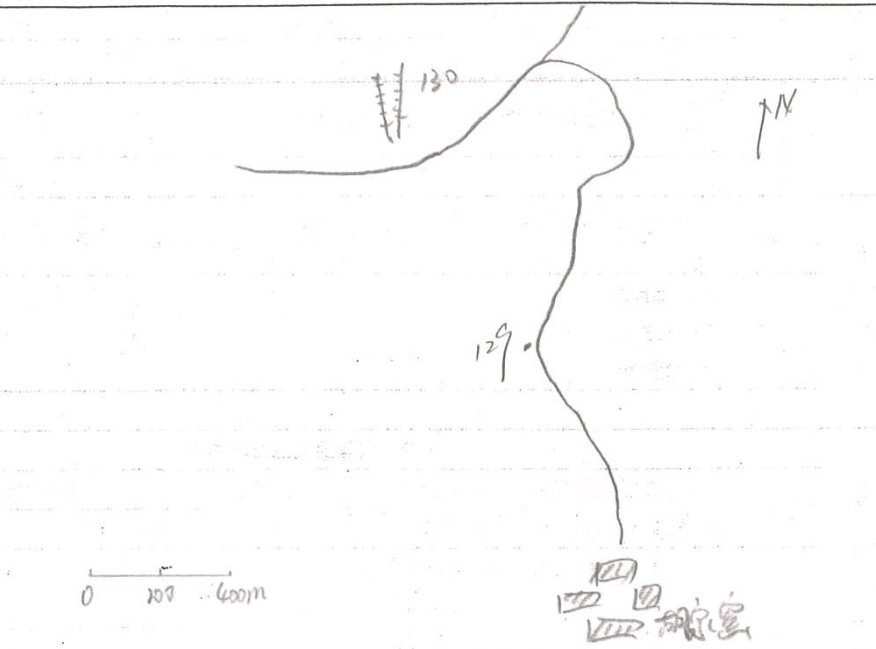 130
N
129
0 200 400m